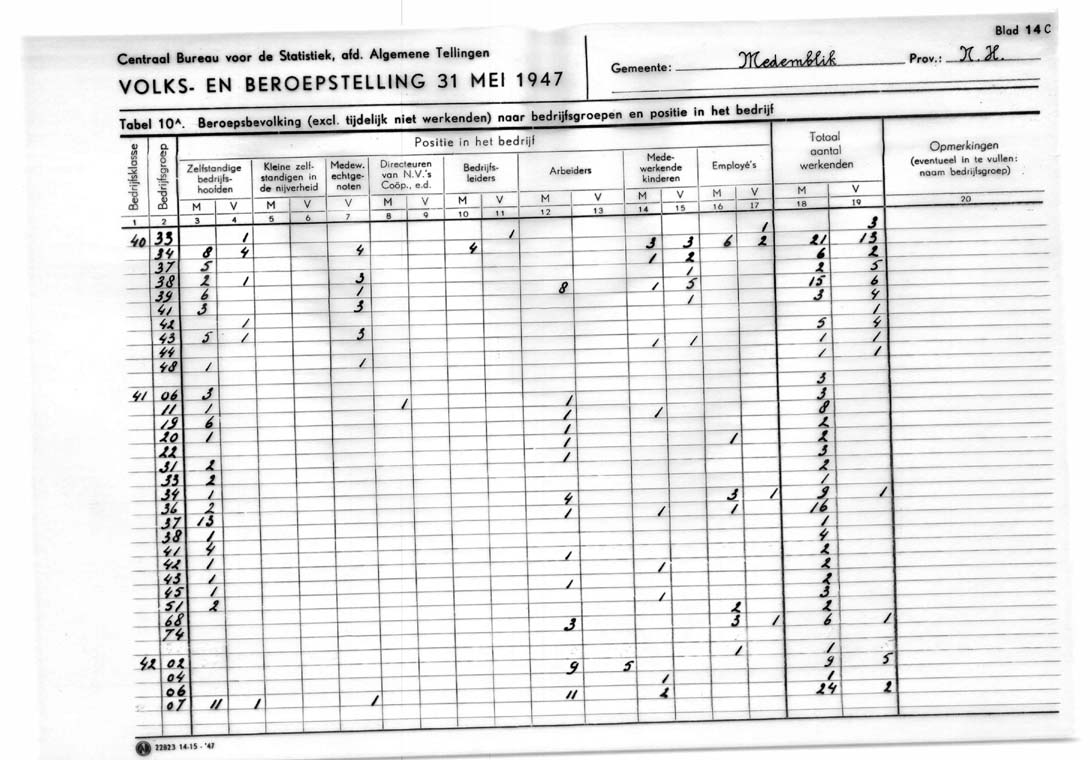 Blad 14 C
Centraal Bureau voor de Statistiek, afd. Algemene Tellingen
VOLKS- EN BEROEPSTELLING 31 MEI 1947
Gemeente: Medemblik Prov.: N. H.
Tabel 10A. Beroepsbevolking (excl. tijdelijk niet werkenden) naar bedrijfsgroepen en positie in het bedrijf
Bedrijfsklasse
Bedrijfsgroep
Positie in het bedrijf
Zelfstandige bedrijfs-hoofden
Kleine zelf-standigen in de nijverheid
Medew. echtge-noten
Directeuren van N.V.'s Coöp., e.d.
Bedrijfs-leiders
Arbeiders
Mede-werkende kinderen
Employé's
Totaal aantal werkenden
Opmerkingen (eventueel in te vullen: naam bedrijfsgroep)
M V M V V M V M V M V M V M V M V
1 2 3 4 5 6 7 8 9 10 11 12 13 14 15 16 17 18 19 20
40 33 1 1 1 3
34 8 4 4 4 3 3 6 2 21 13
37 5 1 2 6 2
38 2 1 3 1 2 5
39 6 1 8 1 5 15 6
41 3 3 1 3 4
42 1 1
43 5 1 3 5 4
44 1 1 1 1
48 1 1 1 1
41 06 3 3
11 1 1 1 3
19 6 1 1 8
20 1 1 2
22 1 1 2
31 2 1 3
33 2 2
34 1 1
36 2 4 3 1 9 1
37 13 1 1 1 16
38 1 1
41 4 4
42 1 1 2
43 1 1 2
45 1 1 2
51 2 1 3
68 2 2
74 3 3 1 6 1
42 02 1 1
04 9 5 9 5
06 1 1
07 11 1 1 11 2 24 2
22823 14-15 - '47